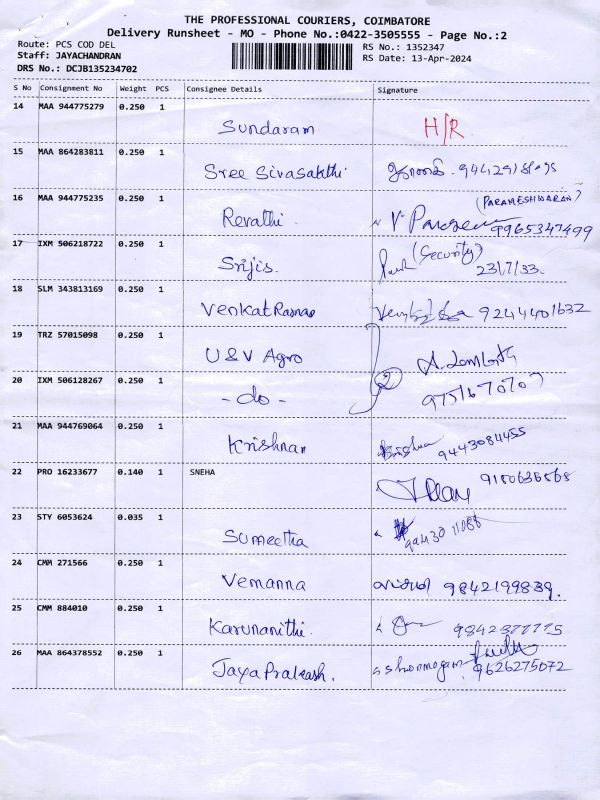 THE PROFESSIONAL COURIERS, COIMBATORE
Delivery Runsheet - MO - Phone No.:0422-3505555 - Page No.:2
Route: PCS COD DEL
Staff: JAYACHANDRAN
DRS No.: DCJB135234702
RS No.: 1352347
RS Date: 13-Apr-2024
S No Consignment No Weight PCS Consignee Details Signature
14 MAA 944775279 0.250 1
Sundaram H/R
15 MAA 864283811 0.250 1
Sree Sivasakthi
16 MAA 944775235 0.250 1
(PARAMESHWARAN)
Revathi 9965347499
17 IXM 506218722 0.250 1
(Security)
Srijis. 23/7/33.
18 SLM 343813169 0.250 1
Venkat 9244401632
19 TRZ 57015098 0.250 1
U & V Agro
20 IXM 506128267 0.250 1
- do - 9751670707
21 MAA 944769064 0.250 1
Krishnan 9443084455
22 PRO 16233677 0.140 1 SNEHA
23 STY 6053624 0.035 1
Sumeetha
24 CMM 271566 0.250 1
Vemanna 9842199839.
25 CMM 884010 0.250 1
Karunanithi.
26 MAA 864378552 0.250 1
JayaPrakash. 9626275072